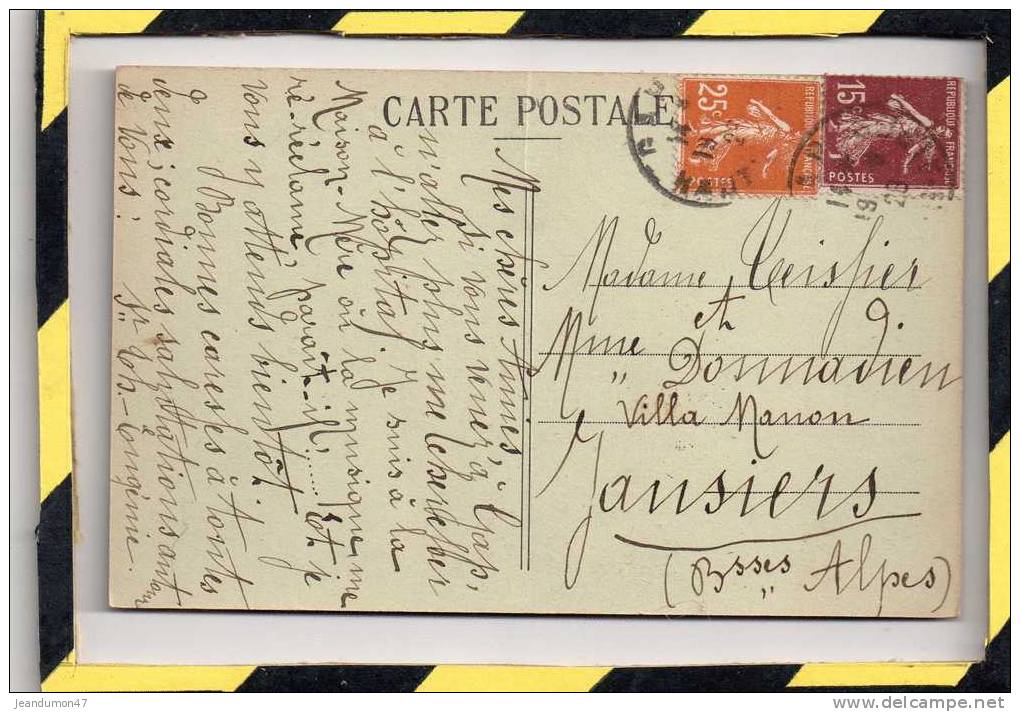 CARTE POSTALE
25c
REPUBLIQUE FRANÇAISE
POSTES
15c
REPUBLIQUE FRANÇAISE
POSTES
Mes chères Amies,
Si vous venez à Gap,
n'allez plus me chercher
à l'hôpital, je suis à la
Maison-Mère où la musique me
ré-réclame, paraît-il,...... Et je
vous y attends bientôt.
Bonnes caresses à toutes
deux; cordiales salutations autour
de Vous:
Sr Jph-Eugénie
Madame Teissier
et
Mme „ Donnadieu
Villa Manon
Jausiers
(Bsses „ Alpes)
jeandumon47
www.delcampe.net